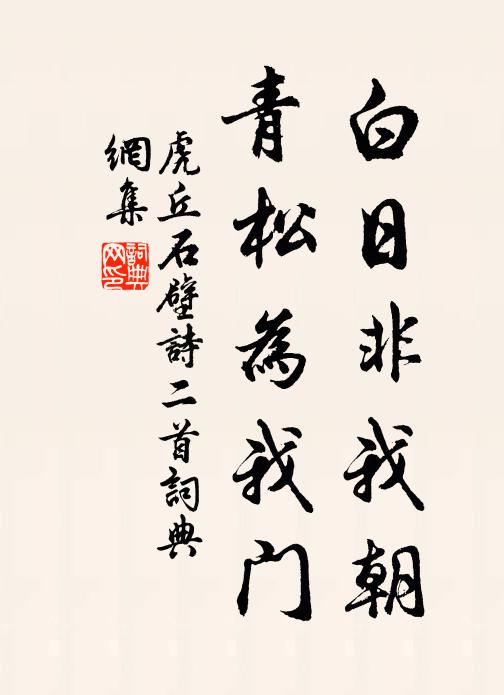 白日非我朝
青松為我門
虎丘石壁詩二首詞典
網集
詞典
网印